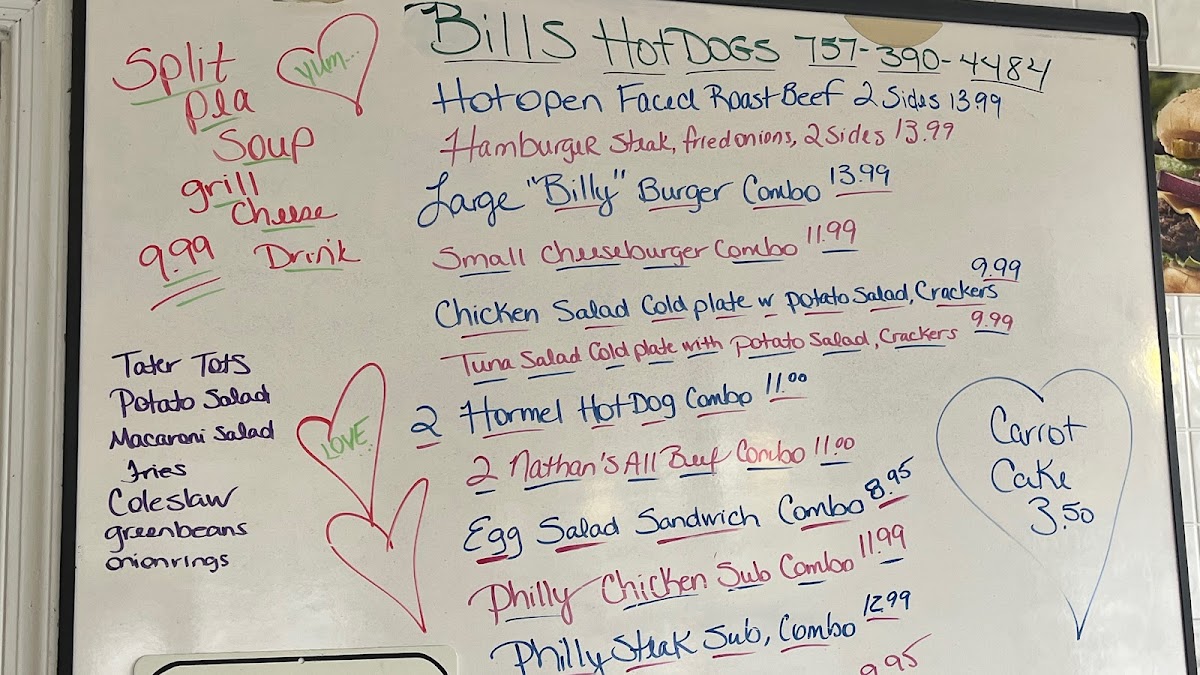 Split
pea
Soup
grill
Cheese
9.99 Drink
yum...
Tater Tots
Potato Salad
Macaroni Salad
fries
Coleslaw
greenbeans
onionrings
LOVE
Bills HotDOGS 757-390-4484
Hot open Faced Roast Beef 2 Sides 13.99
Hamburger Steak, fried onions, 2 Sides 13.99
Large "Billy" Burger Combo 13.99
Small Cheeseburger Combo 11.99
Chicken Salad Cold plate w potato Salad, Crackers 9.99
Tuna Salad Cold plate with potato Salad, Crackers 9.99
2 Hormel HotDog Combo 11.00
2 Nathan's All Beef Combo 11.00
Egg Salad Sandwich Combo 8.95
Philly Chicken Sub Combo 11.99
Philly Steak Sub, Combo 12.99
9.95
Carrot
Cake
3.50